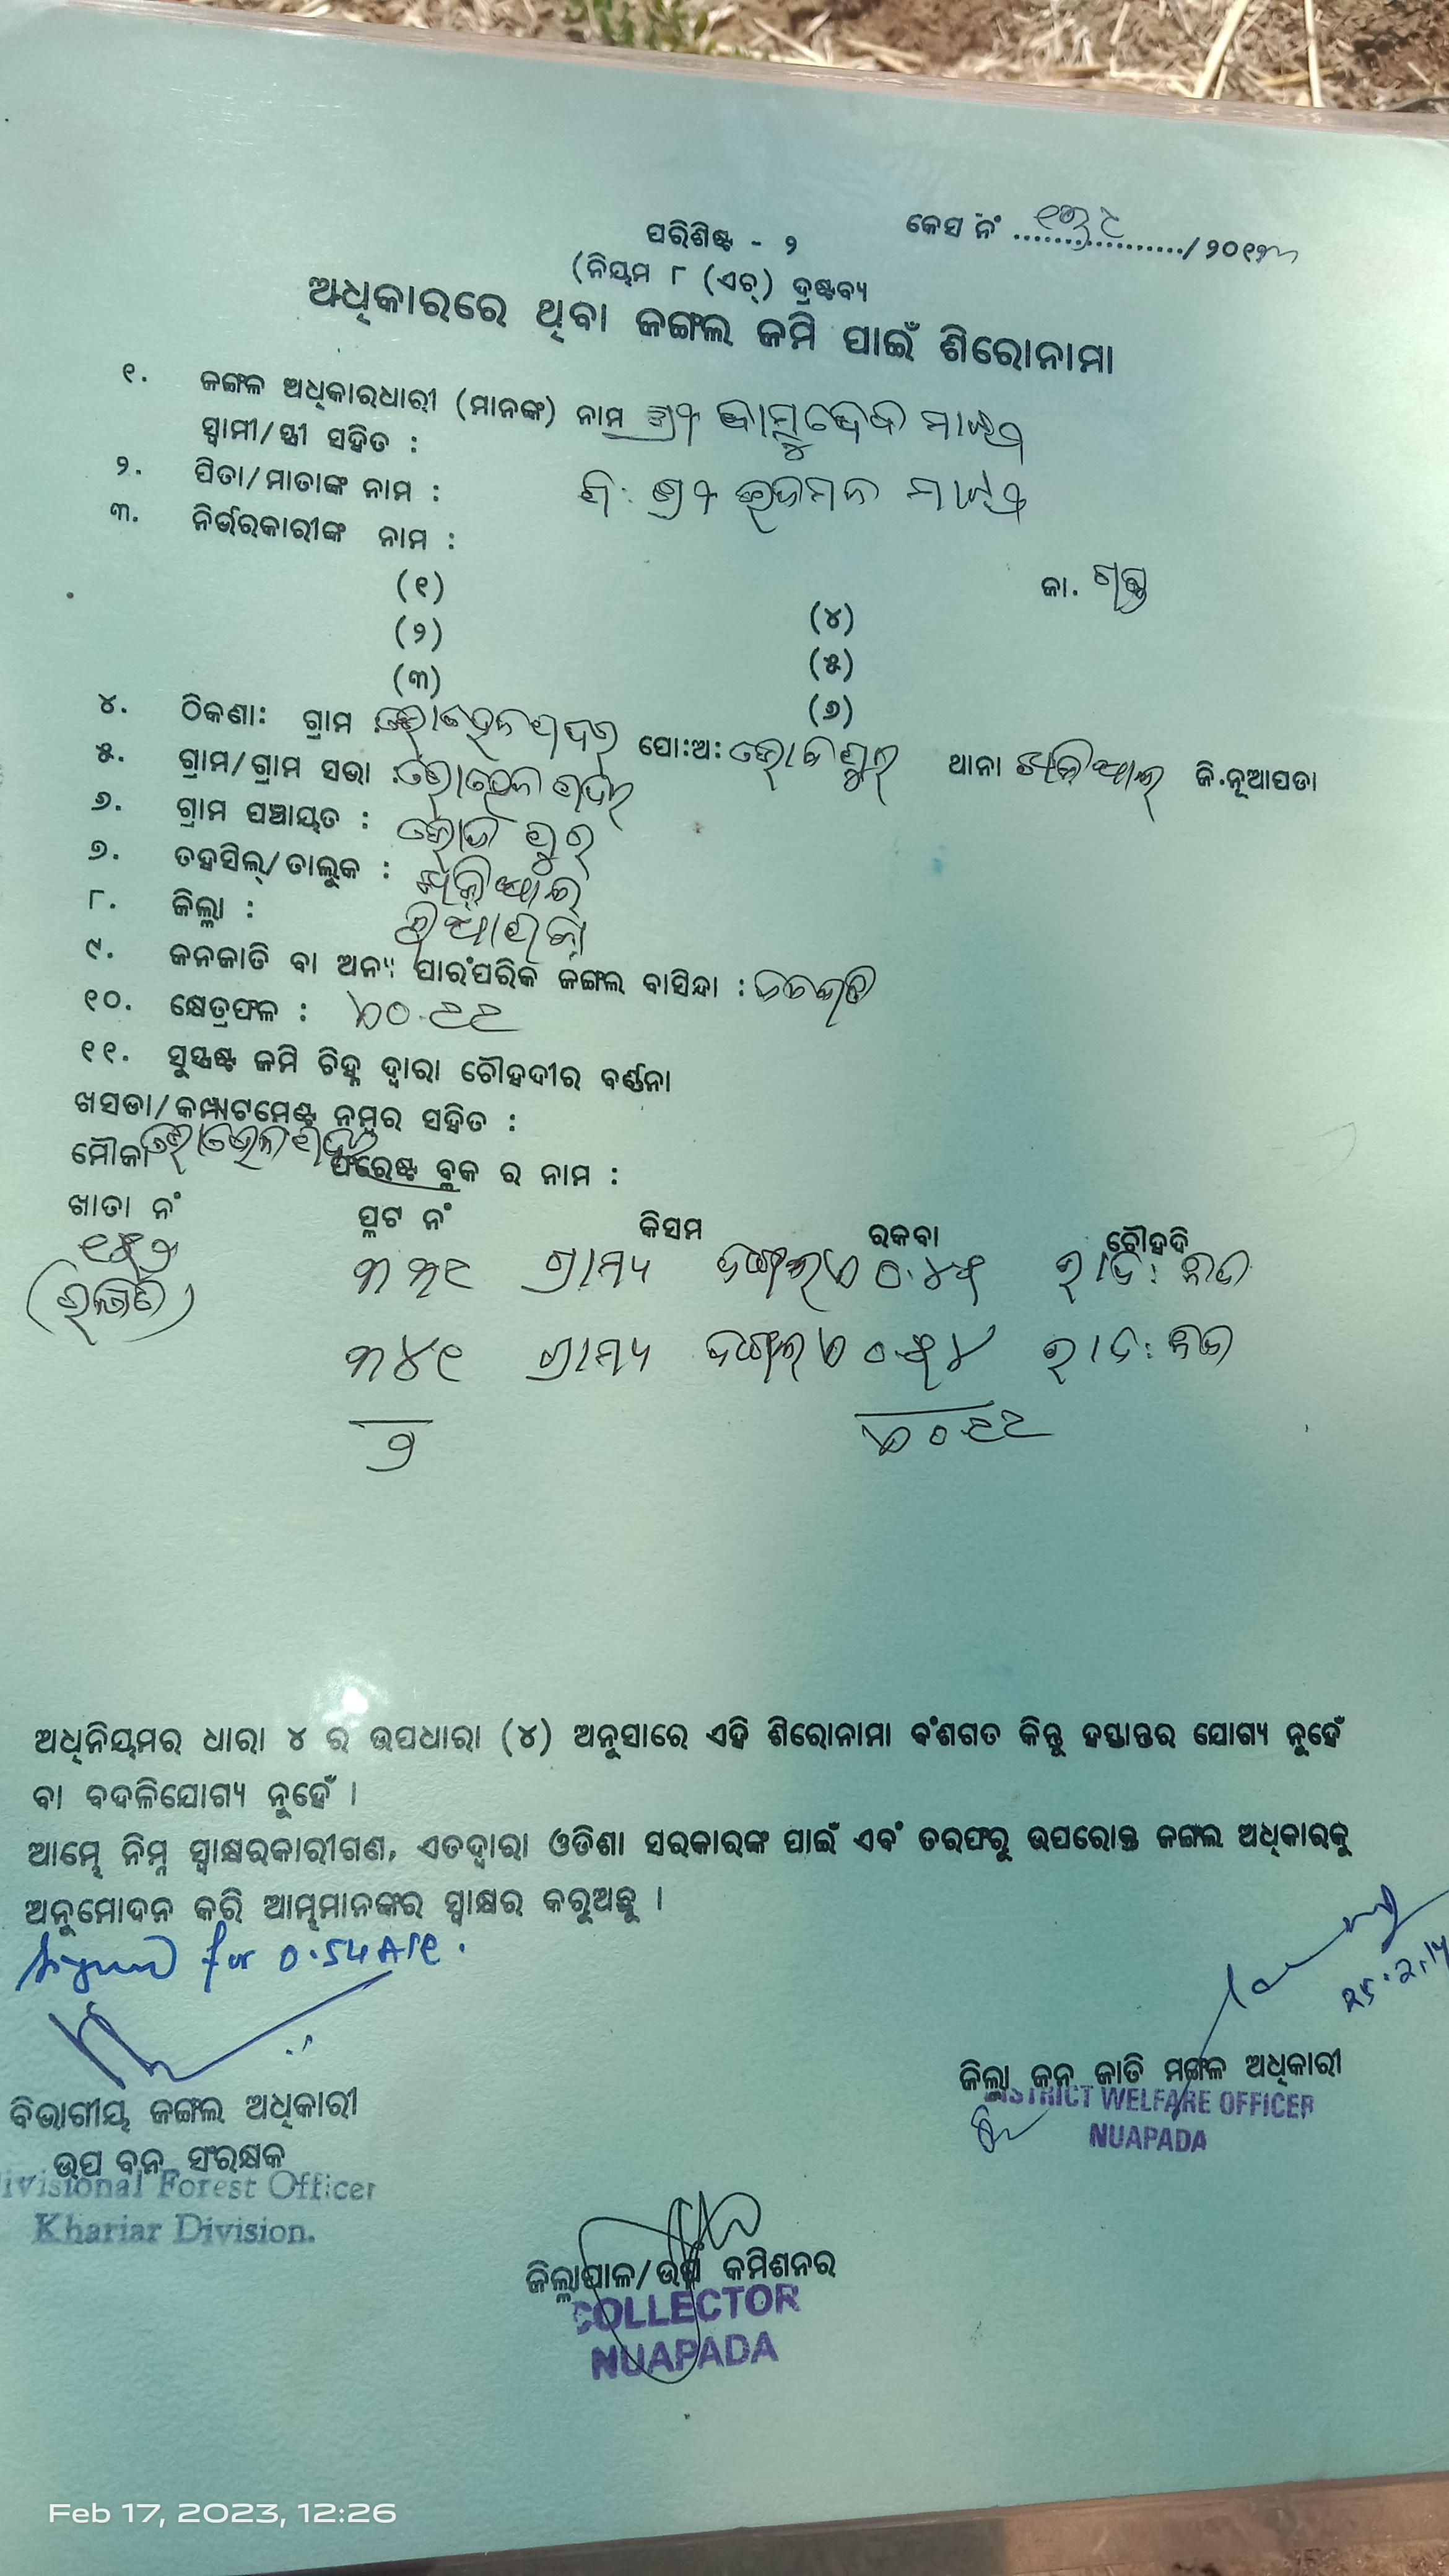 କେସ ନଂ ................../ ୨୦୧୩
ପରିଶିଷ୍ଟ - ୨
(ନିୟମ ୮ (ଏଚ୍) ଦ୍ରଷ୍ଟବ୍ୟ
ଅଧିକାରରେ ଥିବା ଜଙ୍ଗଲ ଜମି ପାଇଁ ଶିରୋନାମା
୧. ଜଙ୍ଗଳ ଅଧିକାରଧାରୀ (ମାନଙ୍କ) ନାମ ଶ୍ରୀ ବାସୁଦେବ ମାଝୀ
ସ୍ୱାମୀ/ସ୍ତ୍ରୀ ସହିତ :
୨. ପିତା/ମାତାଙ୍କ ନାମ : ପି: ଶ୍ରୀ ମାଝୀ
୩. ନିର୍ଭରକାରୀଙ୍କ ନାମ :
ଜା.
(୧) (୪)
(୨) (୫)
(୩) (୬)
୪. ଠିକଣା: ଗ୍ରାମ : ପୋ:ଅ: ଭୋଜପୁର ଥାନା ଖଡିଆଳ ଜି.ନୂଆପଡା
୫. ଗ୍ରାମ/ଗ୍ରାମ ସଭା :
୬. ଗ୍ରାମ ପଞ୍ଚାୟତ : ଭୋଜପୁର
୭. ତହସିଲ୍/ତାଲୁକ : ଖଡିଆଳ
୮. ଜିଲ୍ଲା : ନୂଆପଡା
୯. ଜନଜାତି ବା ଅନ୍ୟ ପାରଂପରିକ ଜଙ୍ଗଲ ବାସିନ୍ଦା : ଜନଜାତି
୧୦. କ୍ଷେତ୍ରଫଳ : ୦.୯୯
୧୧. ସୁସ୍ପଷ୍ଟ ଜମି ଚିହ୍ନ ଦ୍ୱାରା ଚୌହଦୀର ବର୍ଣ୍ଣନା
ଖସଡା/କମ୍ପାଟମେଣ୍ଟ ନମ୍ବର ସହିତ :
ମୌଜା ଫରେଷ୍ଟ ବ୍ଲକ ର ନାମ :
ଖାତା ନଂ ପ୍ଲଟ ନଂ କିସମ ରକବା ଚୌହଦି
୧୫୭ ୩୩୧ ଗ୍ରାମ୍ୟ ଜଙ୍ଗଲ ୦.୪୫
(ରକ୍ଷିତ)
୩୪୧ ଗ୍ରାମ୍ୟ ଜଙ୍ଗଲ ୦.୫୪
୨ ୦.୯୯
ଅଧିନିୟମର ଧାରା ୪ ର ଉପଧାରା (୪) ଅନୁସାରେ ଏହି ଶିରୋନାମା ବଂଶଗତ କିନ୍ତୁ ହସ୍ତାନ୍ତର ଯୋଗ୍ୟ ନୁହେଁ
ବା ବଦଳିଯୋଗ୍ୟ ନୁହେଁ ।
ଆମ୍ଭେ ନିମ୍ନ ସ୍ୱାକ୍ଷରକାରୀଗଣ, ଏତଦ୍ୱାରା ଓଡିଶା ସରକାରଙ୍କ ପାଇଁ ଏବଂ ତରଫରୁ ଉପରୋକ୍ତ ଜଙ୍ଗଲ ଅଧିକାରକୁ
ଅନୁମୋଦନ କରି ଆମ୍ଭମାନଙ୍କର ସ୍ୱାକ୍ଷର କରୁଅଛୁ ।
Signed for 0.54 Ac.
ଜିଲ୍ଲା ଜନ ଜାତି ମଙ୍ଗଳ ଅଧିକାରୀ
DISTRICT WELFARE OFFICER
NUAPADA
ବିଭାଗୀୟ ଜଙ୍ଗଲ ଅଧିକାରୀ
ଉପ ବନ ସଂରକ୍ଷକ
Divisional Forest Officer
Khariar Division.
ଜିଲ୍ଲାପାଳ/ଉପ କମିଶନର
COLLECTOR
NUAPADA
Feb 17, 2023, 12:26